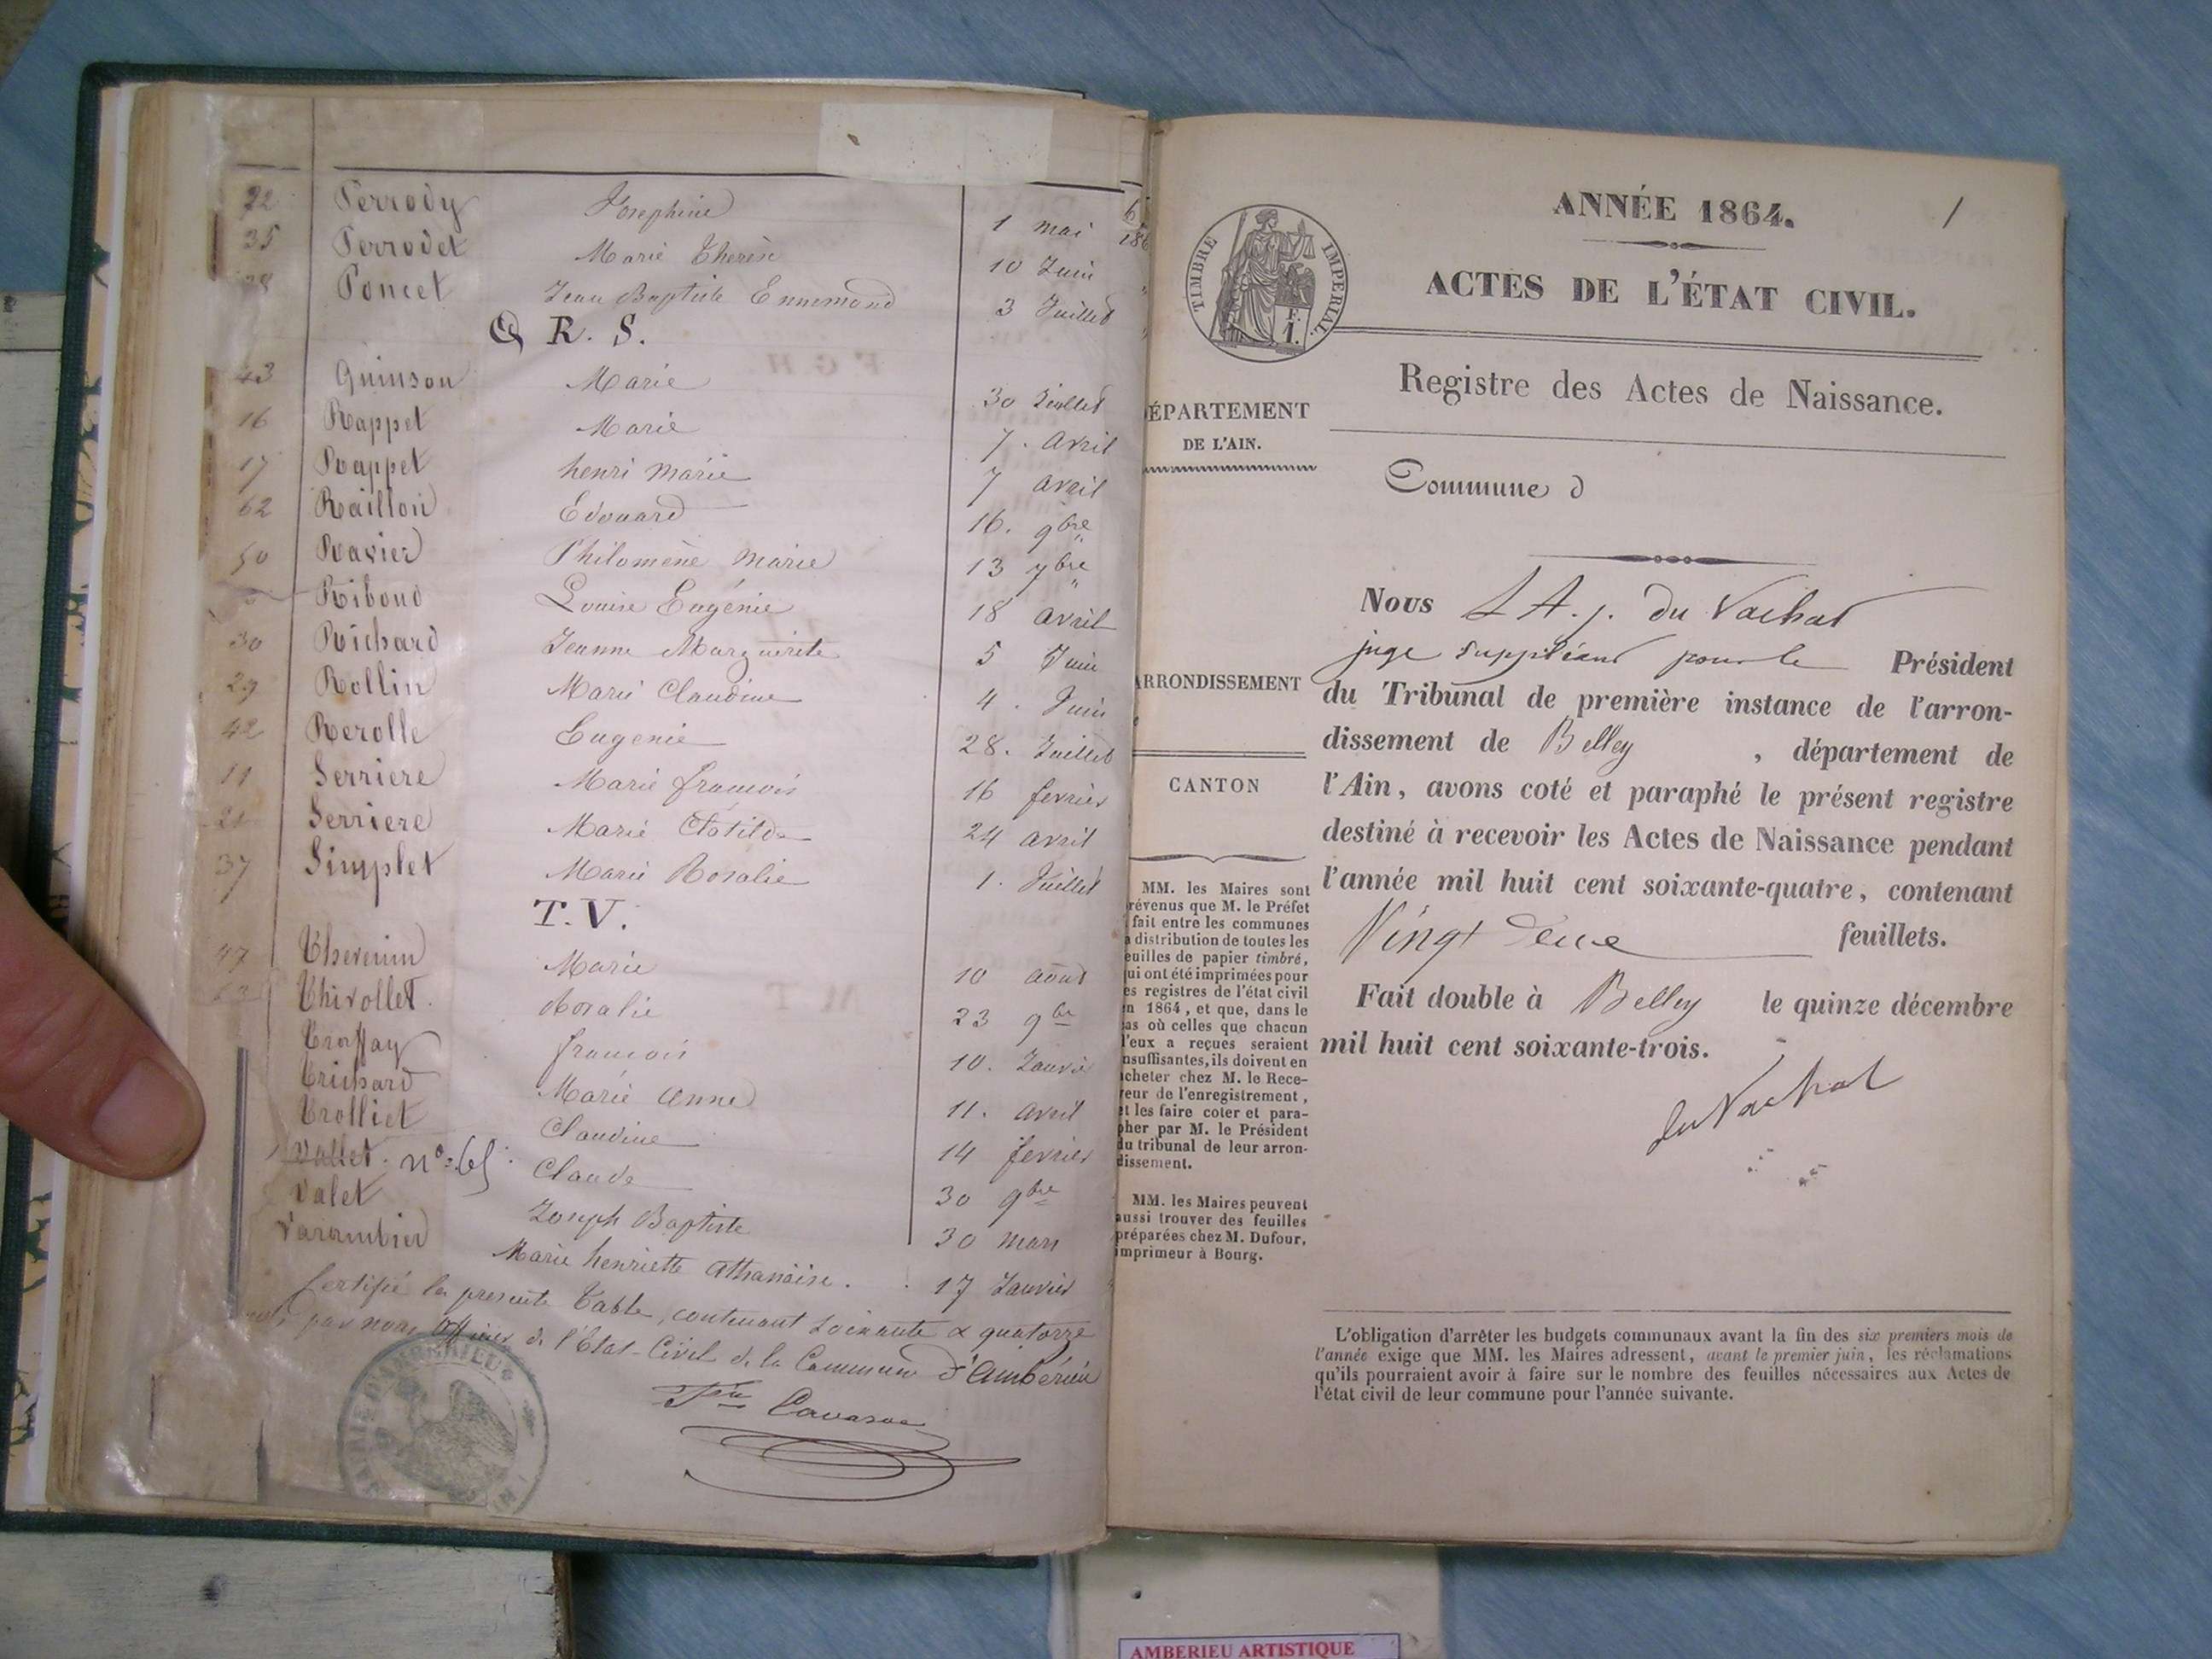 22 Perrody Josephine 1 mai
35 Perrodet Marie Therèse 10 Juin
Poncet Jean Baptiste Ennemond 3 Juillet
Q R. S.
43 Quinson Marie 30 Juillet
16 Rappet Marie 7. Avril
17 Rappet henri Marie 7 avril
62 Raillon Edouard 16. 9bre
50 Ravier Philomène Marie 13 7bre
Riboud Louise Eugénie 18 avril
30 Richard Jeanne Marguerite 5 Juin
29 Rollin Marie Claudine 4. Juin
42 Rerolle Eugenie 28. Juillet
11 Serriere Marie françois 16 fevrier
21 Serriere Marie Clotilde 24 avril
37 Simplet Marie Rosalie 1. Juillet
T. V.
47 Thevenin Marie 10 aout
Thivollet. Rosalie 23 9bre
françois 10. Janvier
Trichard Marie Anne 11. avril
Trolliet Claudine 14 fevrier
Vallet. n° 65. Claude 30 9bre
Valet Joseph Baptiste 30 mars
Varambier Marie henriette Athanaise. 17 Janvier
Certifié la presente Table, contenant soixante & quatorze
par nous Officier de l'Etat-Civil de la Commune d'Ambérieu
ANNÉE 1864.
1
ACTES DE L'ÉTAT CIVIL.
TIMBRE IMPERIAL.
Registre des Actes de Naissance.
ÉPARTEMENT
DE L'AIN.
Commune d
Nous L A. j. du Vachat
juge suppléant pour le Président
du Tribunal de première instance de l'arron-
dissement de Belley , département de
l'Ain, avons coté et paraphé le présent registre
destiné à recevoir les Actes de Naissance pendant
l'année mil huit cent soixante-quatre, contenant
Vingt deux feuillets.
Fait double à Belley le quinze décembre
mil huit cent soixante-trois.
du Vachat
ARRONDISSEMENT
CANTON
MM. les Maires sont
révenus que M. le Préfet
fait entre les communes
a distribution de toutes les
euilles de papier timbré,
ui ont été imprimées pour
es registres de l'état civil
n 1864, et que, dans le
as où celles que chacun
'eux a reçues seraient
nsuffisantes, ils doivent en
cheter chez M. le Rece-
veur de l'enregistrement,
et les faire coter et para-
pher par M. le Président
du tribunal de leur arron-
dissement.
MM. les Maires peuvent
aussi trouver des feuilles
préparées chez M. Dufour,
imprimeur à Bourg.
L'obligation d'arrêter les budgets communaux avant la fin des six premiers mois de
l'année exige que MM. les Maires adressent, avant le premier juin, les réclamations
qu'ils pourraient avoir à faire sur le nombre des feuilles nécessaires aux Actes de
l'état civil de leur commune pour l'année suivante.
AMBERIEU ARTISTIQUE